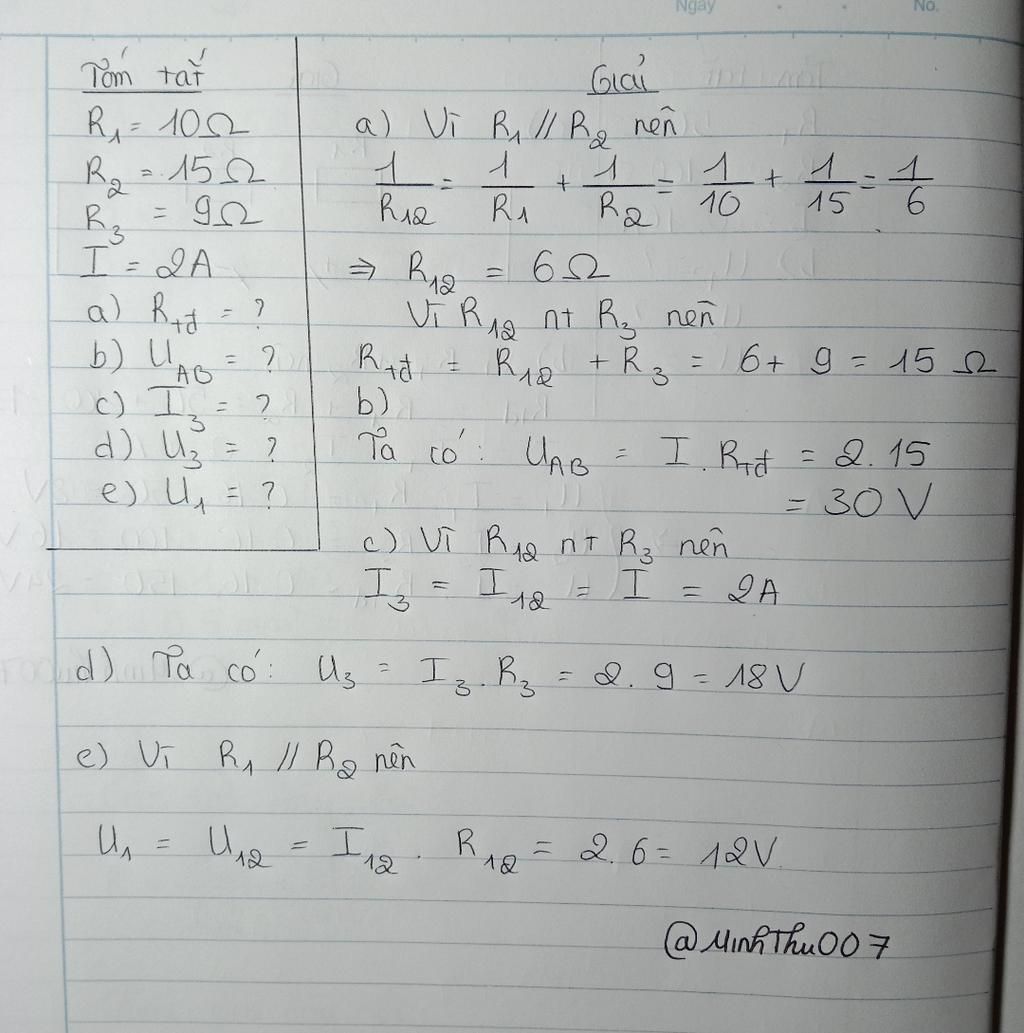 Ngày
No.
Tóm tắt
R₁ = 10Ω
R₂ = 15Ω
R₃ = 9Ω
I = 2A
a) Rtđ = ?
b) U_AB = ?
c) I₃ = ?
d) U₃ = ?
e) U₁ = ?
Giải
a) Vì R₁ // R₂ nên
1/R₁₂ = 1/R₁ + 1/R₂ = 1/10 + 1/15 = 1/6
⇒ R₁₂ = 6Ω
Vì R₁₂ nt R₃ nên
Rtđ = R₁₂ + R₃ = 6 + 9 = 15 Ω
b)
Ta có: U_AB = I . Rtđ = 2. 15
= 30 V
c) Vì R₁₂ nt R₃ nên
I₃ = I₁₂ = I = 2A
d) Ta có: U₃ = I₃ . R₃ = 2. 9 = 18V
e) Vì R₁ // R₂ nên
U₁ = U₁₂ = I₁₂ . R₁₂ = 2. 6 = 12V
@MinhThu007